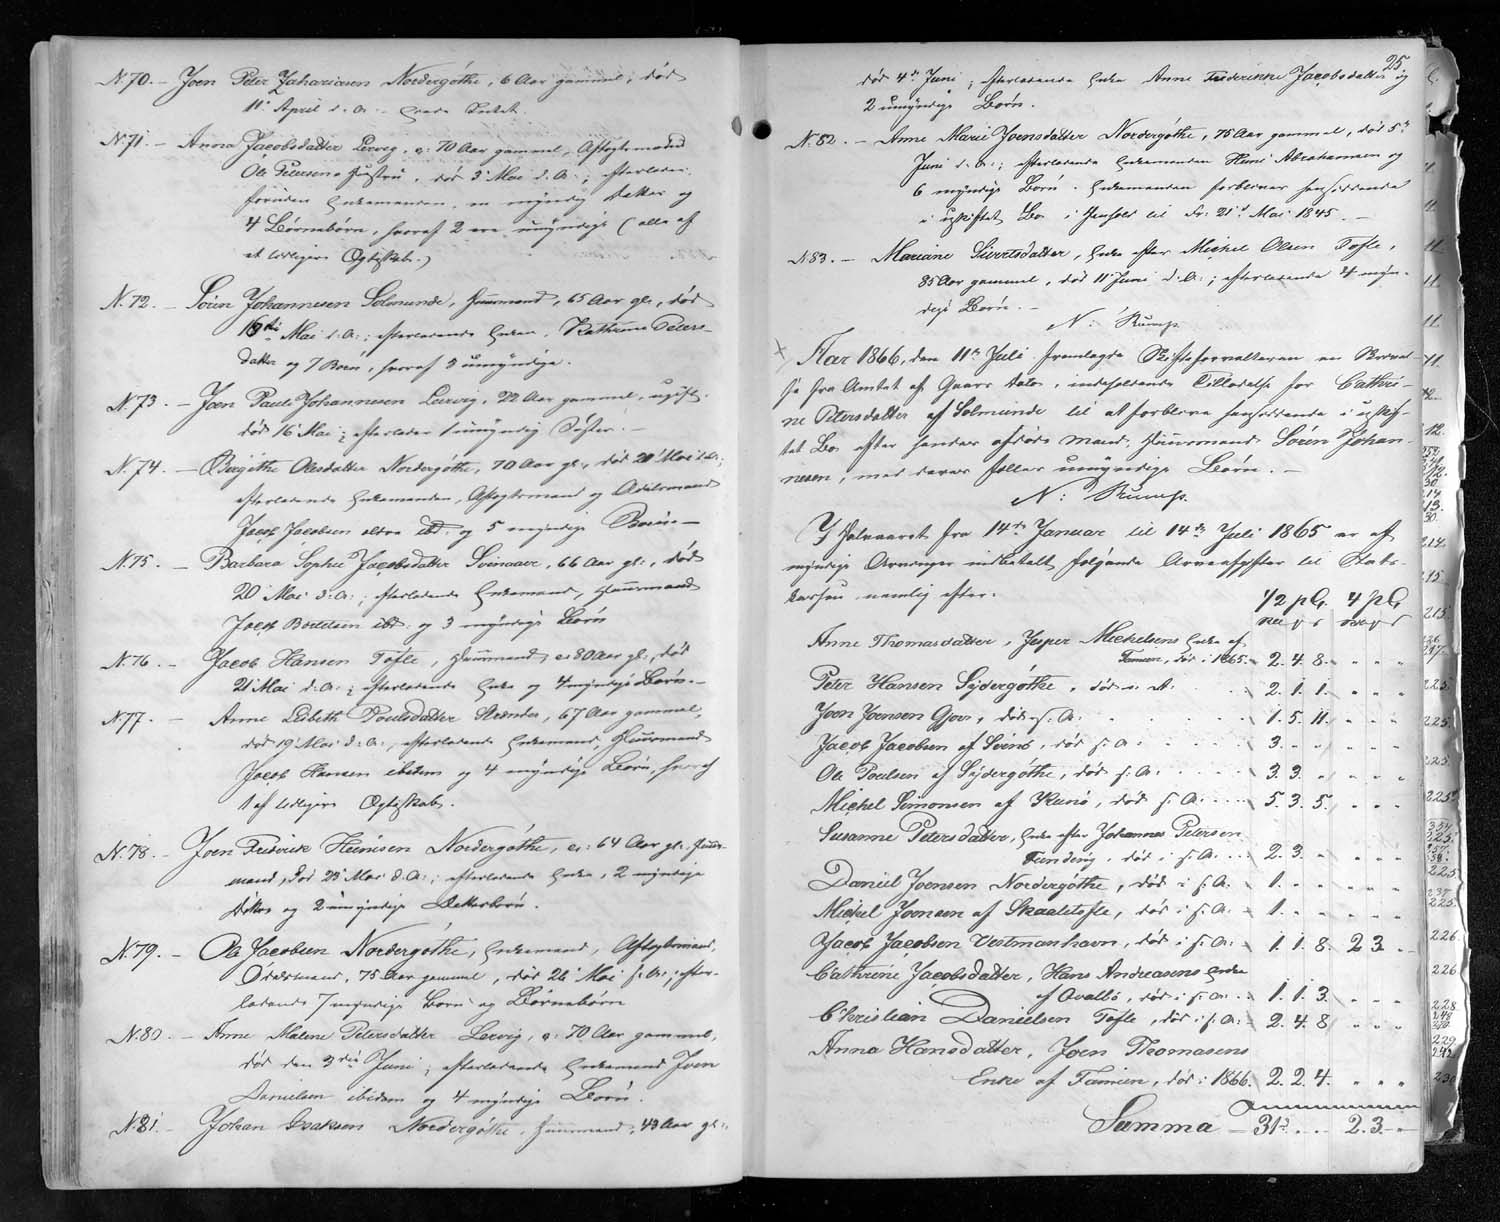 N. 70. – Joen Peter Zahariasen Nordergöthe, 6 Aar gammel, död
11' April d. A.
N. 71. – Anna Jacobsdatter Lervig, c: 70 Aar gammel, Aftægtsmand
Ole Petersens Hustru, död 3' Mai d. A.; efterlader
foruden Enkemanden, en myndig Datter og
4 Börnebörn, hvoraf 2 ere umyndige (alle af
et tidligere Ægteskab.)
N. 72. – Sören Johannesen Solmunde, Huusmand, 65 Aar gl., död
Mai d. A.; efterladende Enken Kathrine Peters-
datter og 7 Börn, hvoraf 3 umyndige.
N. 73. – Joen Pauli Johannesen Lervig, 22 Aar gammel, ugift.
död 16' Mai; efterlader 1 umyndig Söster. –
N. 74. – Birgithe Olesdatter Nordergöthe, 70 Aar gl., död 20' Mai d. A.;
efterladende Enkemanden, Aftægtsmand og Odelsmand
Jacob Jacobsen ældre ibd. og 5 myndige Börn –
N. 75. – Barbara Sophie Jacobsdatter Svinaaer, 66 Aar gl., död
20' Mai d. A.; efterladende Enkemand, Huusmand
Jacob ibd. og 3 myndige Börn
N. 76. – Jacob Hansen Tofte, Huusmand c: 80 Aar gl., död
21' Mai d. A.; efterladende Enke og 4 myndige Börn. –
N. 77. – Anne Lisbeth Poulsdatter Strænder, 67 Aar gammel,
död 19' Mai d. A., efterladende Enkemand, Huusmand
Jacob Hansen ibidem og 4 myndige Börn, hvoraf
1 af tidligere Ægteskab.
N. 78. – Joen Friderik Heinesen Nordergöthe, c: 64 Aar gl. Huus-
mand, död 23' Mai d. A.; efterladende Enke, 2 myndige
Döttre og 2 umyndige Datterbörn.
N. 79. – Ole Jacobsen Nordergöthe, Enkemand, Aftægtsmand,
Odelsmand, 75 Aar gammel, död 26' Mai s. A.; efter-
ladende 7 myndige Börn og Börnebörn
N. 80. – Anne Malene Petersdatter Lervig, c: 70 Aar gammel,
död den 3die Juni; efterladende Enkemand Joen
Danielsen ibidem og 4 myndige Börn.
N. 81. – Johan Isaksen Nordergöthe, Huusmand, 43 Aar gl.,
25
död 4de Juni; efterladende Enke Anne Frederikke Jacobsdatter og
2 umyndige Börn.
N. 82. – Anne Marie Joensdatter Nordergöthe, 75 Aar gammel, död 5te
Juni d. A.; efterladende Enkemanden Hans Abrahamsen og
6 myndige Börn. Enkemanden forbliver hensiddende
i uskiftet Bo i Henhold til Fr: 21de Mai 1845. –
N. 83. – Mariane Siurtsdatter, Enke efter Michel Olsen Tofte,
85 Aar gammel, död 11' Juni d. A.; efterladende 4 myn-
dige Börn. –
N: Rump.
Aar 1866, den 11te Juli fremlagde Skifteforvalteren en Skrivel-
se fra Amtet af Gaars Dato, indeholdende Tilladelse for Cathri-
ne Petersdatter af Solmunde til at forblive hensiddende i uskif-
tet Bo efter hendes afdöde Mand, Huusmand Sören Johan-
nesen, med deres fælles umyndige Börn. –
N: Rump.
I Halvaaret fra 14de Januar til 14de Juli 1865 er af
myndige Arvinger indbetalt fölgende Arveafgifter til Stats-
kassen, nemlig efter:
1/2 pCt. 4 pCt.
Anne Thomasdatter, Jesper Michelsens Enke af
Famien, död i 1865. 2. 4. 8. " " "
Peter Hansen Sydergöthe, död s. A. 2. 1. 1. " " "
Joen Joensen Gjov, död s. A. 1. 5. 11. " " "
Jacob Jacobsen af Svinö, död s. A. 3. " " " " "
Ole Poulsen af Sydergöthe, död s. A. 3. 3. " " " "
Michel Simonsen af Kunö, död s. A. 5. 3. 5. " " "
Susanne Petersdatter, Enke efter Johannes Petersen
Funding, död i s. A. 2. 3. " " " "
Daniel Joensen Nordergöthe, död i s. A. 1. " " " " "
Michel Joensen af Skaaletofte, död i s. A. 1. " " " " "
Jacob Jacobsen Vestmanhavn, död i s. A. 1. 1. 8. 2 3. "
Cathrine Jacobsdatter, Hans Andreasens Enke
af Qvalbö, död i s. A. 1. 1. 3. " " "
Christian Danielsen Tofte, död i s. A. 2. 4. 8 " " "
Anna Hansdatter, Joen Thomasens
Enke af Famien, död i 1866. 2. 2. 4. " " "
Summa – 31 " " 2. 3. "